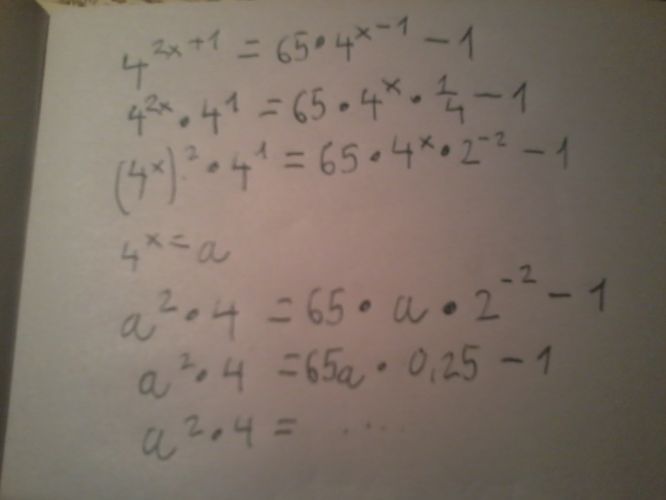 4^{2x+1} = 65 • 4^{x-1} - 1
4^{2x} • 4^1 = 65 • 4^x • \frac{1}{4} - 1
(4^x)^2 • 4^1 = 65 • 4^x • 2^{-2} - 1
4^x = a
a^2 • 4 = 65 • a • 2^{-2} - 1
a^2 • 4 = 65a • 0,25 - 1
a^2 • 4 = ....